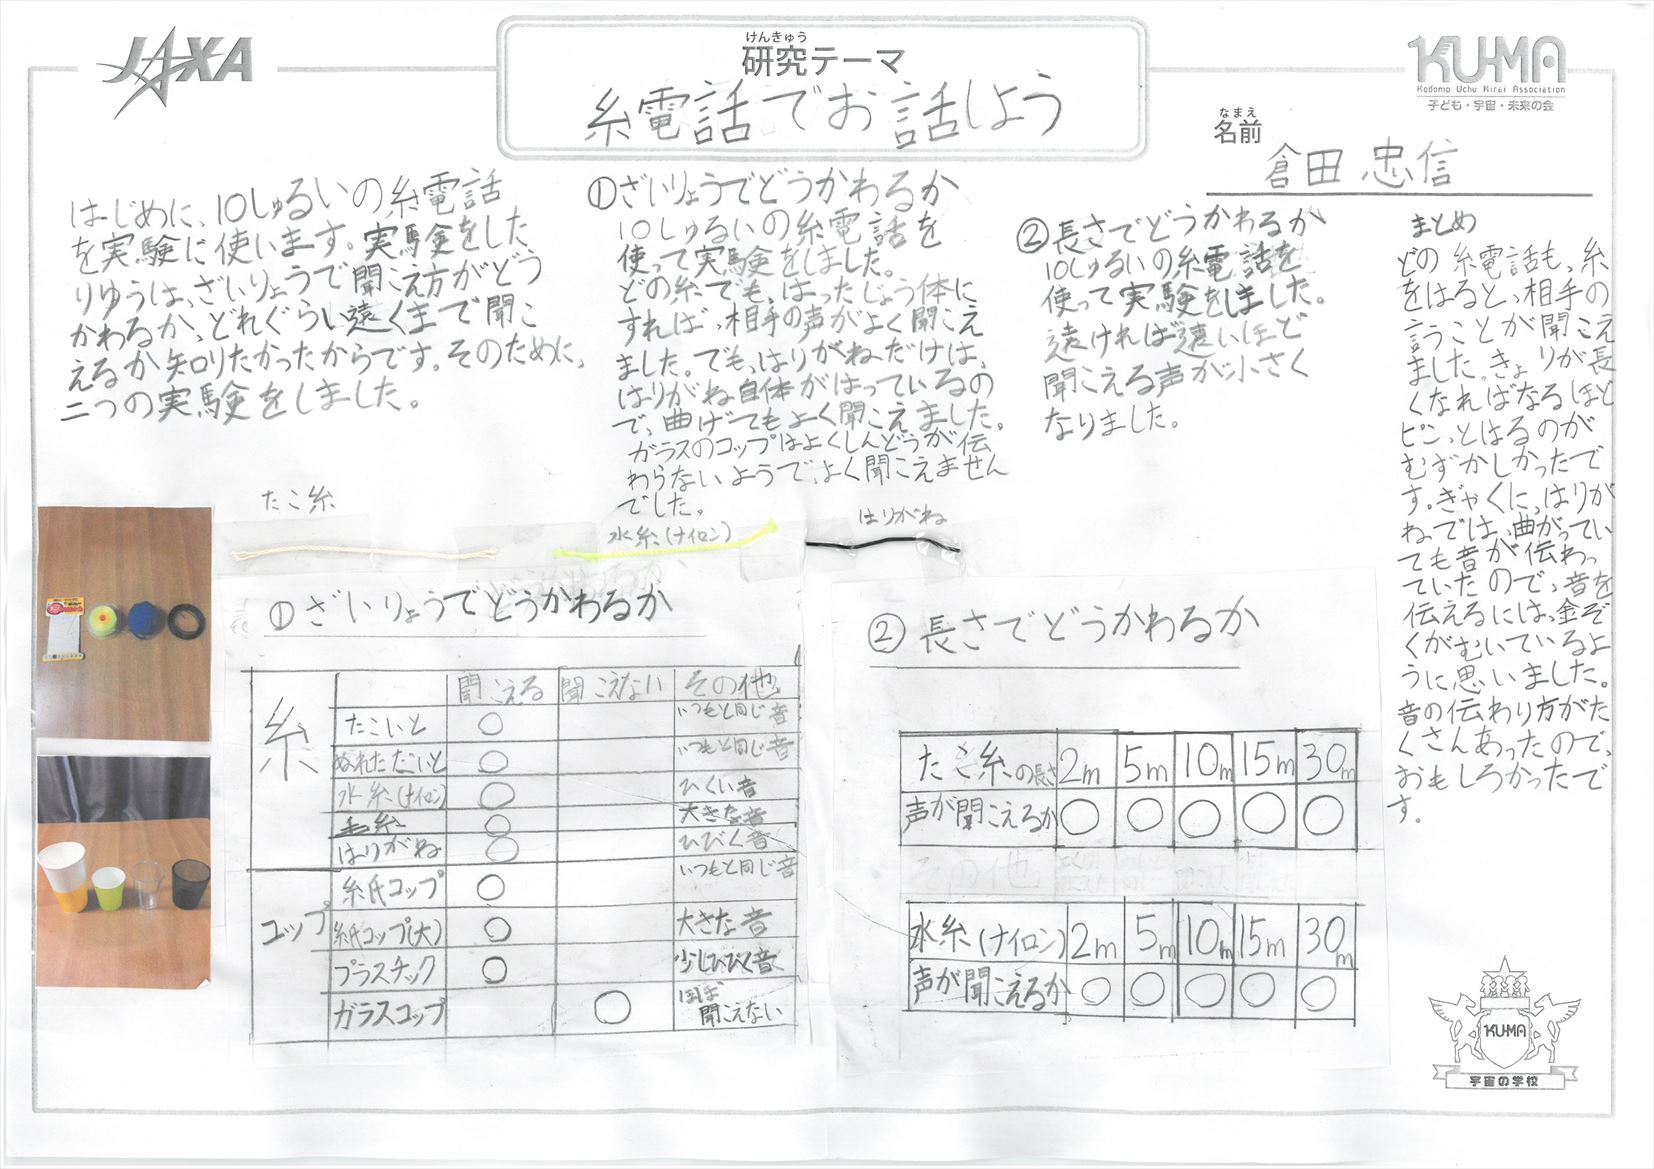 JAXA
けんきゅう
研究テーマ
糸電話でお話しよう
KU-MA
Kodomo Uchu Mirai Association
子ども・宇宙・未来の会
なまえ
名前
倉田 忠信
はじめに、10しゅるいの糸電話
を実験に使います。実験をした
りゆうは、ざいりょうで聞え方がどう
かわるか、どれぐらい遠くまで聞こ
えるか知りたかったからです。そのために、
二つの実験をしました。
①ざいりょうでどうかわるか
10しゅるいの糸電話を
使って実験をしました。
どの糸でも、はったじょう体に
すれば、相手の声がよく聞こえ
ました。でも、はりがねだけは、
はりがね自体がはっているの
で、曲げてもよく聞こえました。
ガラスのコップはよくしんどうが伝
わらないようで、よく聞こえません
でした。
②長さでどうかわるか
10しゅるいの糸電話を
使って実験をしました。
遠ければ遠いほど
聞こえる声が小さく
なりました。
まとめ
どの糸電話も、糸
をはると、相手の
言うことが聞こえ
ました。きょりが長
くなればなるほど
ピンっとはるのが
むずかしかったで
す。ぎゃくに、はりが
ねでは、曲がってい
ても音が伝わっ
ていたので、音を
伝えるには、金ぞ
くがむいているよ
うに思いました。
音の伝わり方がた
くさんあったので、
おもしろかったで
す。
たこ糸
水糸(ナイロン)
はりがね
①ざいりょうでどうかわるか
聞こえる 聞こえない その他
糸
たこいと ○ いつもと同じ音
ぬれたたこいと ○ いつもと同じ音
水糸(ナイロン) ○ ひくい音
毛糸 ○ 大きな音
はりがね ○ ひびく音
コップ
紙コップ ○ いつもと同じ音
紙コップ(大) ○ 大きな音
プラスチック ○ 少しひびく音
ガラスコップ ○ ほぼ
聞こえない
②長さでどうかわるか
たこ糸の長さ 2m 5m 10m 15m 30m
声が聞こえるか ○ ○ ○ ○ ○
水糸(ナイロン) 2m 5m 10m 15m 30m
声が聞こえるか ○ ○ ○ ○ ○
KU-MA
宇宙の学校